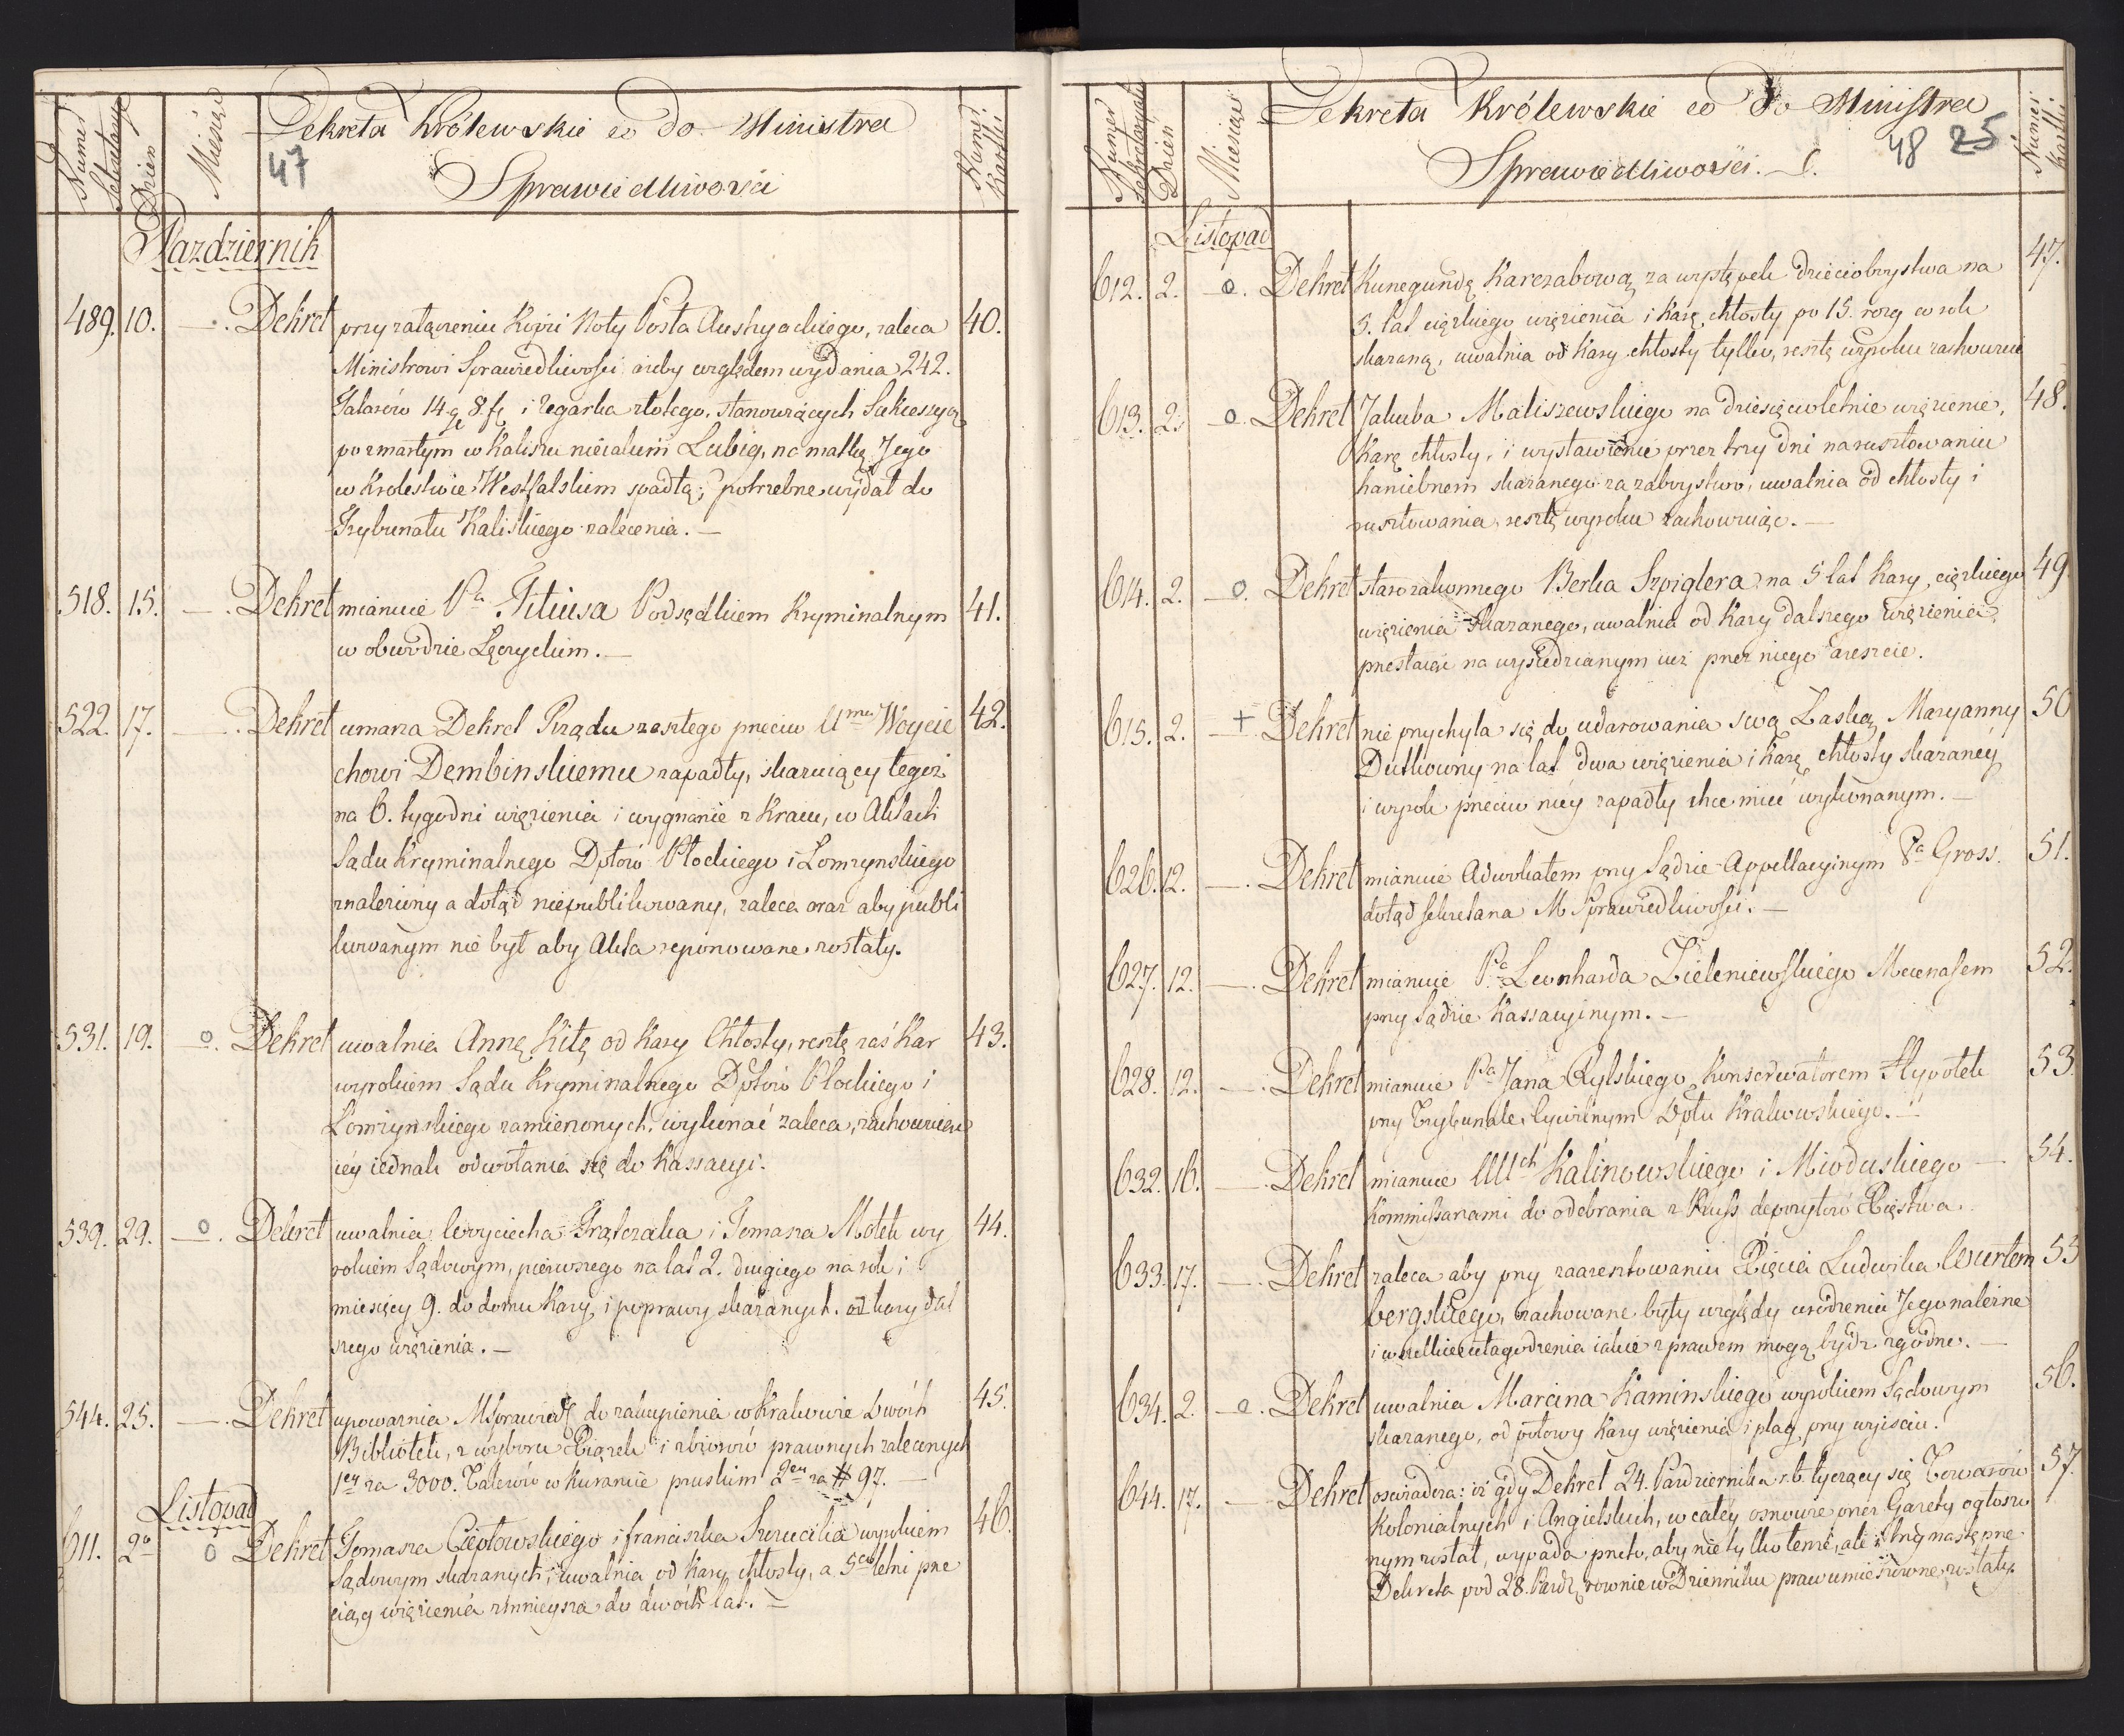 Numer Sekretaryi
Dzień
Miesiąc
Dekreta Królewskie co do Ministra
47
Sprawiedliwości
Numer Kartki
Pazdziernik
489. 10. —. Dekret przy załączeniu Kopii Noty Posła Austryackiego, zaleca 40.
Ministrowi Sprawiedliwości ażeby względem wydania 242.
Talarów 14 g 8 f i zegarka złotego, stanowiących Sukcessyą
po zmarłym w Kaliszu nieiakim Lubig, na matkę Jego
w Krolestwie Westfalskim spadłą; potrzebne wydał do
Trybunału Kaliskiego zalecenia. —
518. 15. —. Dekret mianuie Pa Titiusa Podsędkiem Kryminalnym 41.
w obwodzie Łęczyckim. —
522. 17. —. Dekret umarza Dekret Rządu zeszłego przeciw Ume Woycie 42.
chowi Dembinskiemu zapadły, skazuiący tegoż
na 6. tygodni więzienia i wygnanie z Kraiu, w Aktach
Sądu Kryminalnego Dptów Płockiego i Łomzynskiego
znaleziony a dotąd niepublikowany, zaleca oraz aby publi
kowanym nie był aby Akta reponowane zostały.
531. 19. o. Dekret uwalnia Annę Kitę od Kary Chłosty, resztę zaś Kar 43.
wyrokiem Sądu Kryminalnego Dptów Płockiego i
Łomzynskiego zamierzonych, wykonać zaleca, zachowuiąc
iéy iednak odwołanie się do Kassacyi.
539. 29. o. Dekret uwalnia Woyciecha Frątczaka i Tomasza Motek wy 44.
rokiem Sądowym, pierwszego na lat 2. drugiego na rok i
miesięcy 9. do domu Kary i poprawy skazanych. od kary dal
szego więzienia. —
544. 25. —. Dekret upowaznia MSprawiedł do zakupienia w Krakowie dwóch 45.
Bibliotek, z wyboru Xiązek i zbiorów prawnych zaleconych
1ey za 3000. Talerów w kurancie pruskim 2ey za # 97. —
Listopad
611. 2o o Dekret Tomasza Ciepłowskiego i Franciszka Szrucika wyrokiem 46.
Sądowym skazanych, uwalnia od Kary chłosty, a 5cio letni prze
ciąg więzienia zmnieysza do dwóch lat. —
Numer Sekretaryatu
Dzień
Miesiąc
Dekreta Królewskie co do Ministra
48 25
Sprawiedliwości. —
Numer Kartki
Listopad
612. 2. o. Dekret Kunegundę Karczabową za występek dzieciobóystwa na 47.
5. lat ciężkiego więzienia i karę chłosty po 15. rozg co rok
skazaną, uwalnia od Kary chłosty tylko, resztę wyroku zachowuiąc
613. 2. o. Dekret Jakuba Maliszewskiego na dziesięcioletnie więzienie, 48.
Karę chłosty, i wystawienie przez trzy dni na rusztowaniu
haniebnem skazanego za zaboystwo, uwalnia od chłosty i
rusztowania, resztę wyroku zachowuiąc. —
614. 2. o. Dekret starozakonnego Berka Szpiglera na 5 lat Kary, ciężkiego 49
więzienia skazanego, uwalnia od Kary dalszego więzienia,
przestaiąc na wysiedzianym iuż przez niego areszcie.
615. 2. + Dekret nie przychyla się do udarowania swą Łaską Maryanny 50
Dutkowny na lat dwa więzienia i karę chłosty skazanéy
i wyrok przeciw niéy zapadły chce mieć wykonanym. —
626. 12. —. Dekret mianuie Adwokatem przy Sądzie Appellacyinym Pa Gross. 51.
dotąd sekretarza M Sprawiedliwości. —
627. 12. —. Dekret mianuie Pa Leonharda Zieleniewskiego Mecenasem 52.
przy Sądzie Kassacyinym. —
628. 12. —. Dekret mianuie Pa Jana Rylskiego Konserwatorem Hypotek 53.
przy Trybunale Cywilnym Dptu Krakowskiego. —
632. 16. —. Dekret mianuie UUch Kalinowskiego i Mioduskiego — 54.
Kommissarzami do odebrania z Pruss depozytów Xięstwa.
633. 17. —. Dekret zaleca aby przy zaaresztowaniu Xięcia Ludwika Wurtem 55
bergskiego, zachowane były względy urodzeniu Jego należne
i wszelkie ułagodzenia iakie z prawem mogą bydź zgodne. —
634. 2. o. Dekret uwalnia Marcina Kaminskiego wyrokiem Sądowym 56.
skazanego, od połowy Kary więzienia i plag przy wyisciu.
644. 17. —. Dekret oswiadcza: iż gdy Dekret 24. Pazdziernika r.b. tyczący się Towarów 57.
Kolonialnych i Angielskich, w całéy osnowie przez Gazety ogłoszo
nym został, wypada przeto, aby nie tylko tenże, ale i inny następne
Dekreta pod 28. Pazdz równie w Dzienniku praw umieszczone zostały.